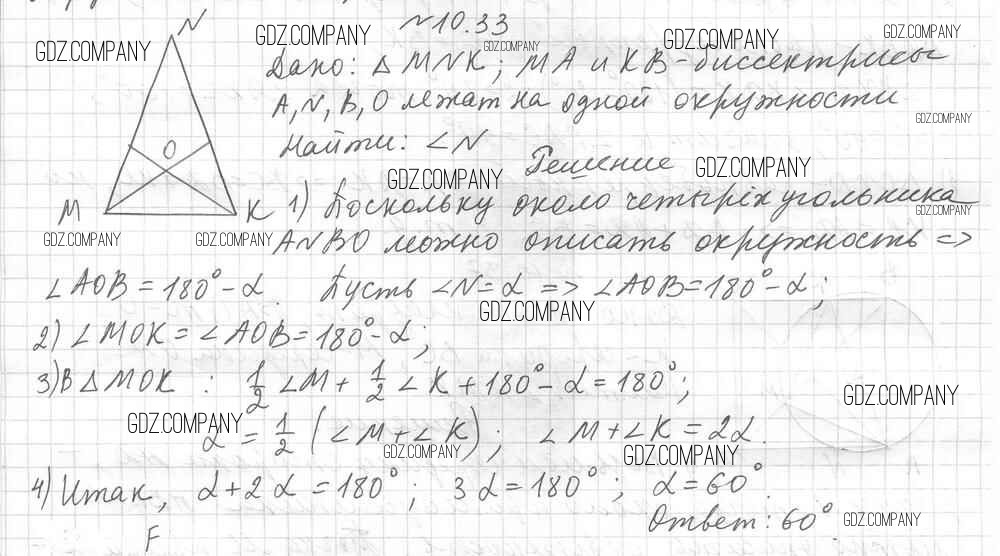 №10.33
N
GDZ.COMPANY GDZ.COMPANY GDZ.COMPANY GDZ.COMPANY GDZ.COMPANY
Дано: △ MNK; MA и KB - биссектрисы
A, N, B, O лежат на одной окружности
GDZ.COMPANY
Найти: ∠N
O
Решение
GDZ.COMPANY GDZ.COMPANY
M K 1) Поскольку около четырёхугольника
GDZ.COMPANY
GDZ.COMPANY GDZ.COMPANY
ANBO можно описать окружность =>
∠AOB = 180° - α. Пусть ∠N = α => ∠AOB = 180° - α;
GDZ.COMPANY
2) ∠MOK = ∠AOB = 180° - α;
3) В △ MOK : 1/2 ∠M + 1/2 ∠K + 180° - α = 180°;
GDZ.COMPANY GDZ.COMPANY
α = 1/2 (∠M + ∠K); ∠M + ∠K = 2α.
GDZ.COMPANY GDZ.COMPANY
4) Итак, α + 2α = 180°; 3α = 180°; α = 60°.
Ответ: 60°
GDZ.COMPANY
F